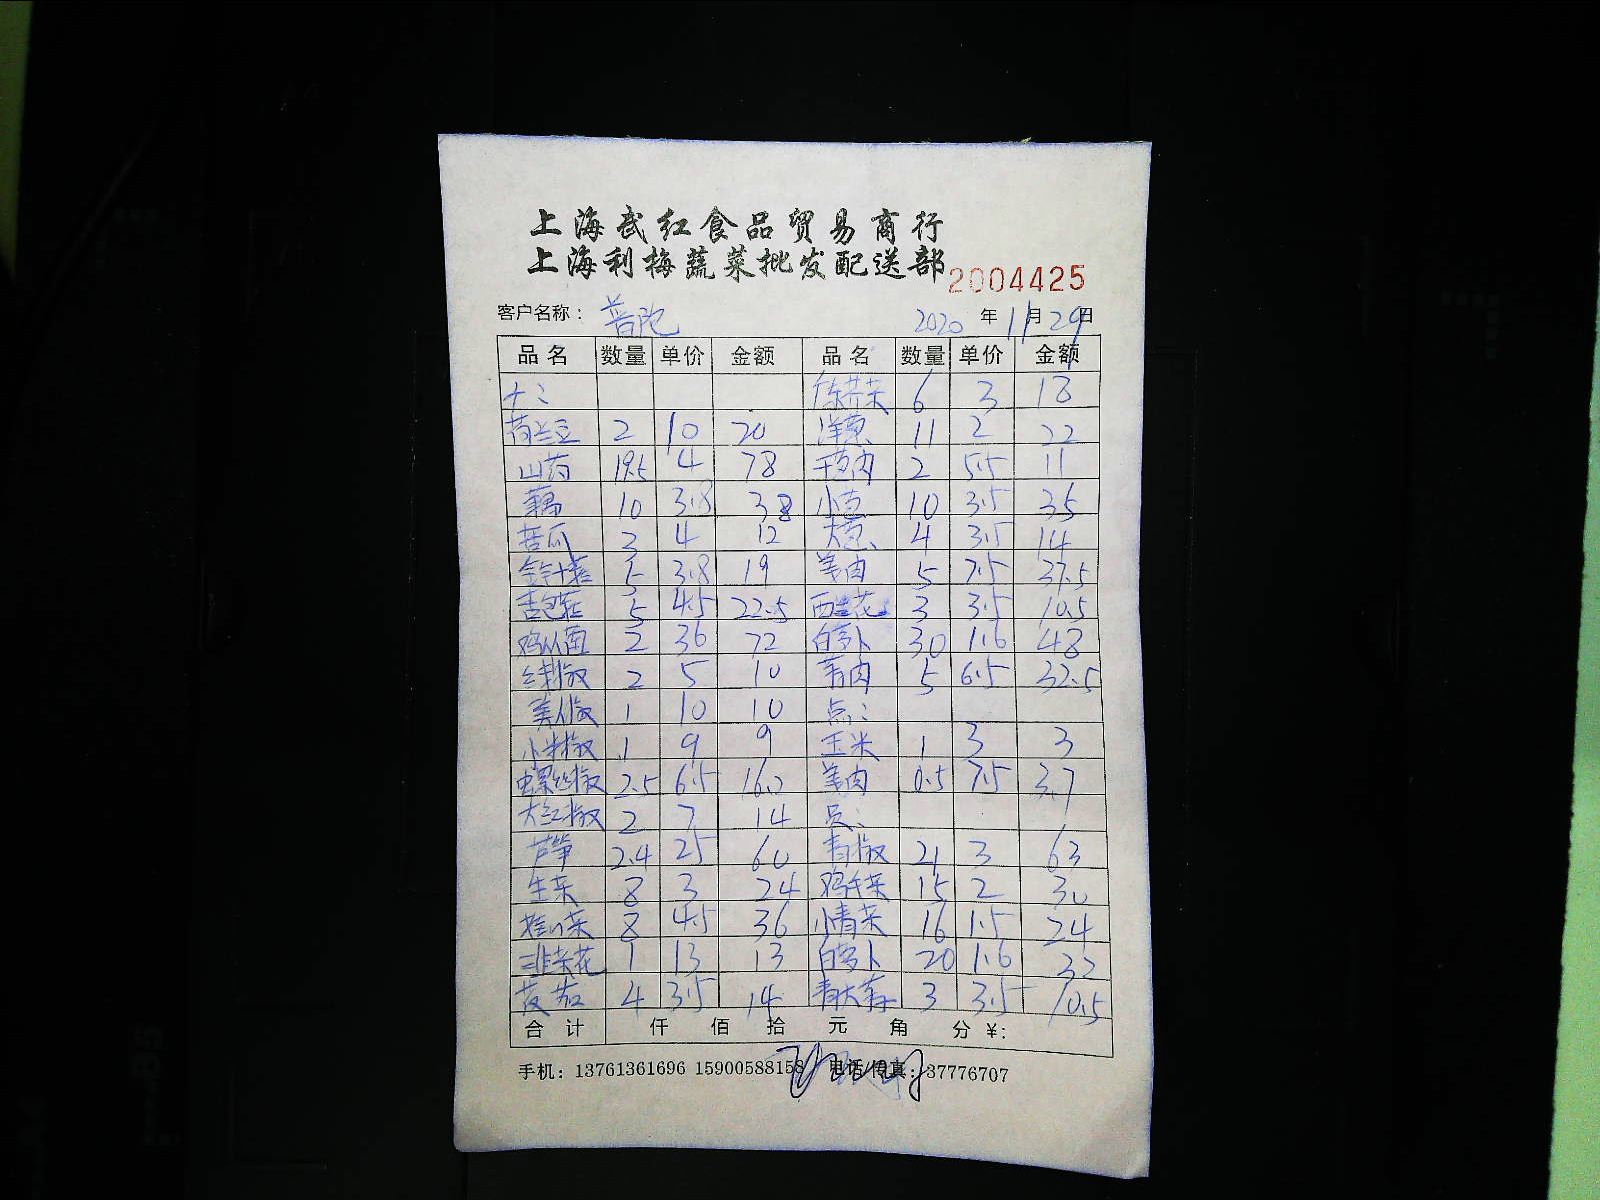 上海武红食品贸易商行
上海利梅蔬菜批发配送部 2004425
客户名称： 普陀 2020 年 11 月 29 日
品名 数量 单价 金额 品名 数量 单价 金额
6 3 18
荷兰豆 2 10 20 洋葱 11 2 22
山药 19.5 4 78 2 5.5 11
藕 10 3.8 38 小葱 10 3.5 35
苦瓜 3 4 12 大葱 4 3.5 14
5 3.8 19 姜肉 5 7.5 37.5
杏包菇 5 4.5 22.5 西兰花 3 3.5 10.5
鸡从菌 2 36 72 白萝卜 30 1.6 48
线椒 2 5 10 5 6.5 32.5
美人椒 1 10 10 点：
小米椒 1 9 9 玉米 1 3 3
螺丝椒 2.5 6.5 16.2 姜肉 0.5 7.5 3.7
大红椒 2 7 14 员：
芦笋 2.4 25 60 青椒 21 3 63
生菜 8 3 24 鸡毛菜 15 2 30
8 4.5 36 小青菜 16 1.5 24
韭菜花 1 13 13 白萝卜 20 1.6 32
茭茄 4 3.5 14 青大蒜 3 3.5 10.5
合计 仟 佰 拾 元 角 分 ¥:
手机：13761361696 15900588158 电话/传真：37776707